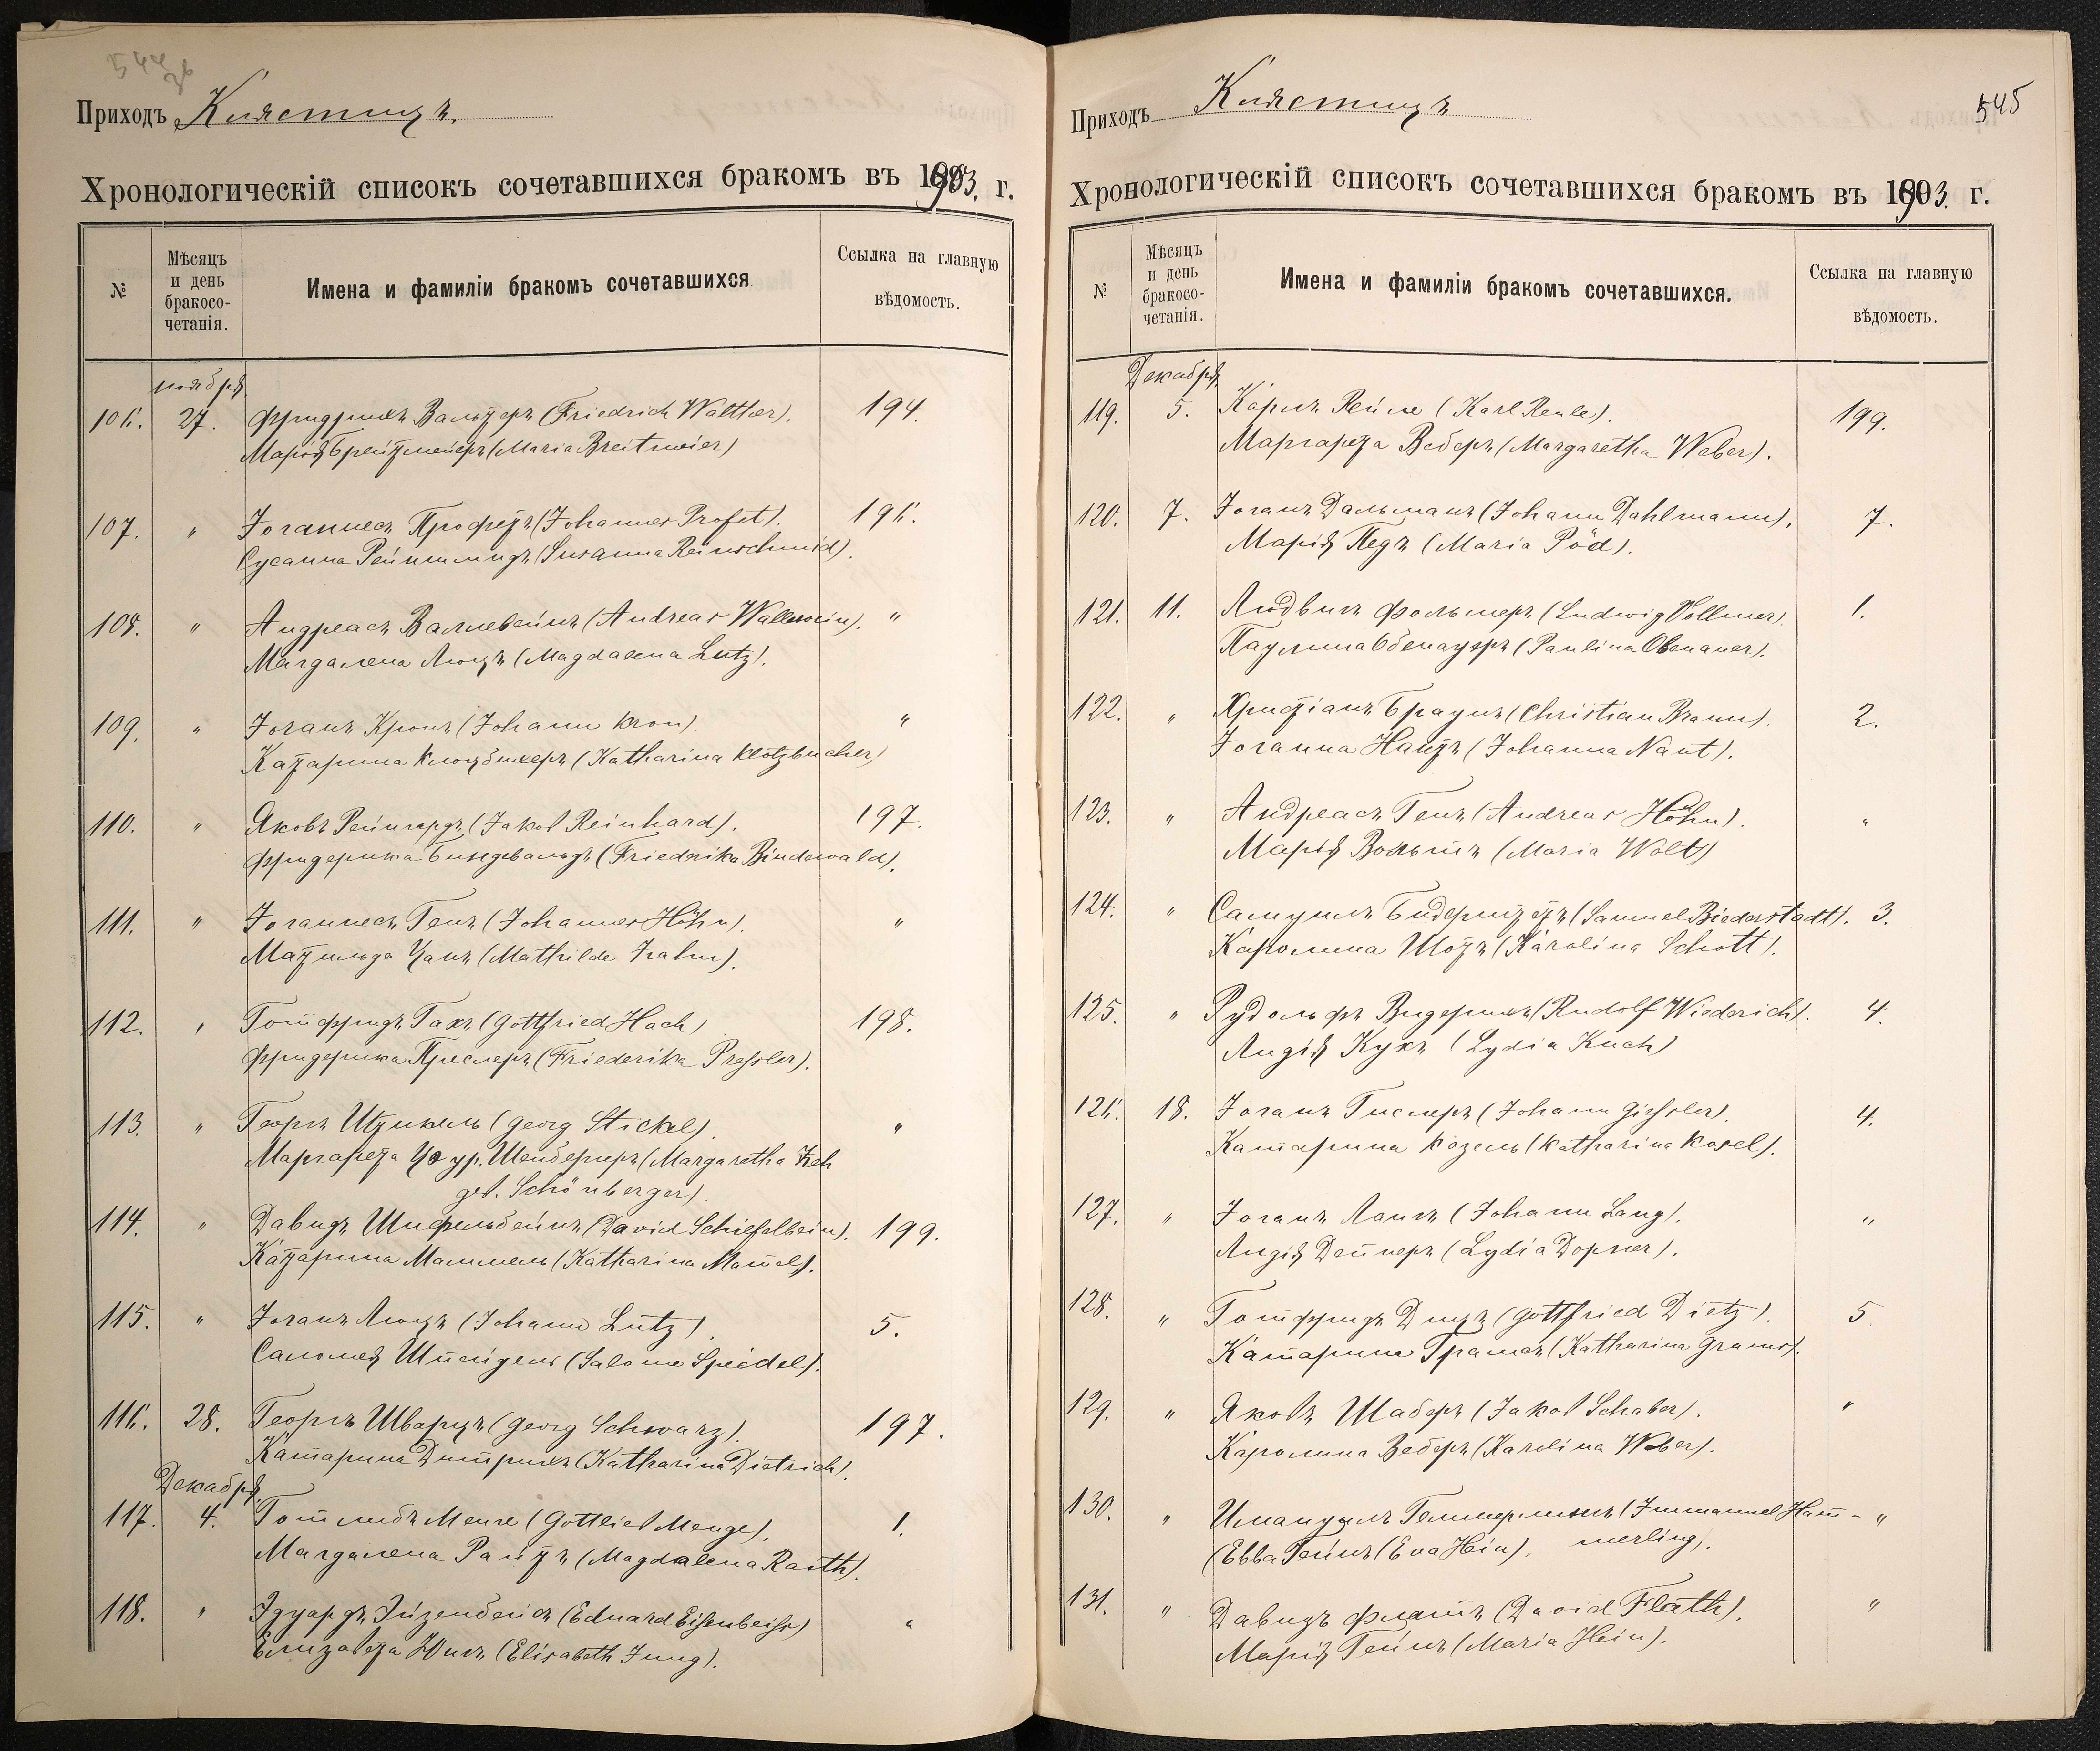 544
Приходъ Клястицъ.
Хронологическій списокъ сочетавшихся бракомъ въ 1903. г.
№ Мѣсяцъ и день бракосо-четанія. Имена и фамиліи бракомъ сочетавшихся Ссылка на главную вѣдомость.
ноября
106. 27. Фридрихъ Вальтеръ (Friedrich Walther). 194.
Марія Брейтмейеръ (Maria Breitmeier)
107. " Іоганнесъ Профетъ (Johannes Profet). 196.
Сусанна Рейншмидъ (Susanna Reinschmid).
108. " Андреасъ Валлевейнъ (Andreas Wallewein). "
Магдалена Люцъ (Magdalena Lutz).
109. " Іоганъ Кронъ (Johann Kron) "
Катарина Клоцбихеръ (Katharina Klotzbücher)
110. " Яковъ Рейнгардъ (Jakob Reinhard). 197.
Фридерика Биндевальдъ (Friedrika Bindewald).
111. " Іоганнесъ Генъ (Johannes Höhn). "
Матильда Цанъ (Mathilde Zahn).
112. " Готфридъ Гахъ (Gottfried Hach) 198.
Фридерика Преслеръ (Friederika Pressler).
113. " Георгъ Штикель (Georg Stickel). "
Маргарета Це ур. Шенбергеръ (Margaretha Zeh
geb. Schönberger).
114. " Давидъ Шифельбейнъ (David Schiefelbein). 199.
Катарина Маммель (Katharina Mam̄el).
115. " Іоганъ Люцъ (Johann Lutz). 5.
Саломея Шпейдель (Salome Speidel).
116. 28. Георгъ Шварцъ (Georg Schwarz). 197.
Катарина Дитрихъ (Katharina Dietrich).
Декабря
117. 4. Готлибъ Менге (Gottlieb Menge). 1.
Магдалена Райтъ (Magdalena Raith).
118. " Эдуардъ Эйзенбейсъ (Eduard Eisenbeiss) "
Елизавета Юнгъ (Elisabeth Jung).
545
Приходъ Клястицъ
Хронологическій списокъ сочетавшихся бракомъ въ 1903. г.
№ Мѣсяцъ и день бракосо-четанія. Имена и фамиліи бракомъ сочетавшихся. Ссылка на главную вѣдомость.
Декабря
119. 5. Карлъ Рейле (Karl Reule). 199.
Маргарета Веберъ (Margaretha Weber).
120. 7. Іоганъ Дальманъ (Johann Dahlmann). 7.
Марія Педъ (Maria Pöd).
121. 11. Людвигъ Фольмеръ (Ludwig Vollmer). 1.
Паулина Обенауеръ (Paulina Obenauer).
122. " Христіанъ Браунъ (Christian Braun). 2.
Іоганна Наутъ (Johanna Naut).
123. " Андреасъ Генъ (Andreas Höhn). "
Марія Вольтъ (Maria Wolt)
124. " Самуилъ Бидерштетъ (Samuel Biederstadt). 3.
Каролина Шотъ (Karolina Schott).
125. " Рудольфъ Видерихъ (Rudolf Wiederich). 4.
Лидія Кухъ (Lydia Kuch)
126. 18. Іоганъ Гислеръ (Johann Giessler). 4.
Катарина Козель (Katharina Kosel).
127. " Іоганъ Лангъ (Johann Lang). "
Лидія Депнеръ (Lydia Döpner).
128. " Готфридъ Дицъ (Gottfried Dietz). 5
Катарина Грамсъ (Katharina Grams).
129. " Яковъ Шаберъ (Jakob Schaber). "
Каролина Веберъ (Karolina Weber).
130. " Имануилъ Геммерлингъ (Immanuel Ham̄- "
(Евва Гейнъ (Eva Hein). merling).
131. " Давидъ Флатъ (David Flath). "
Марія Гейнъ (Maria Hein).